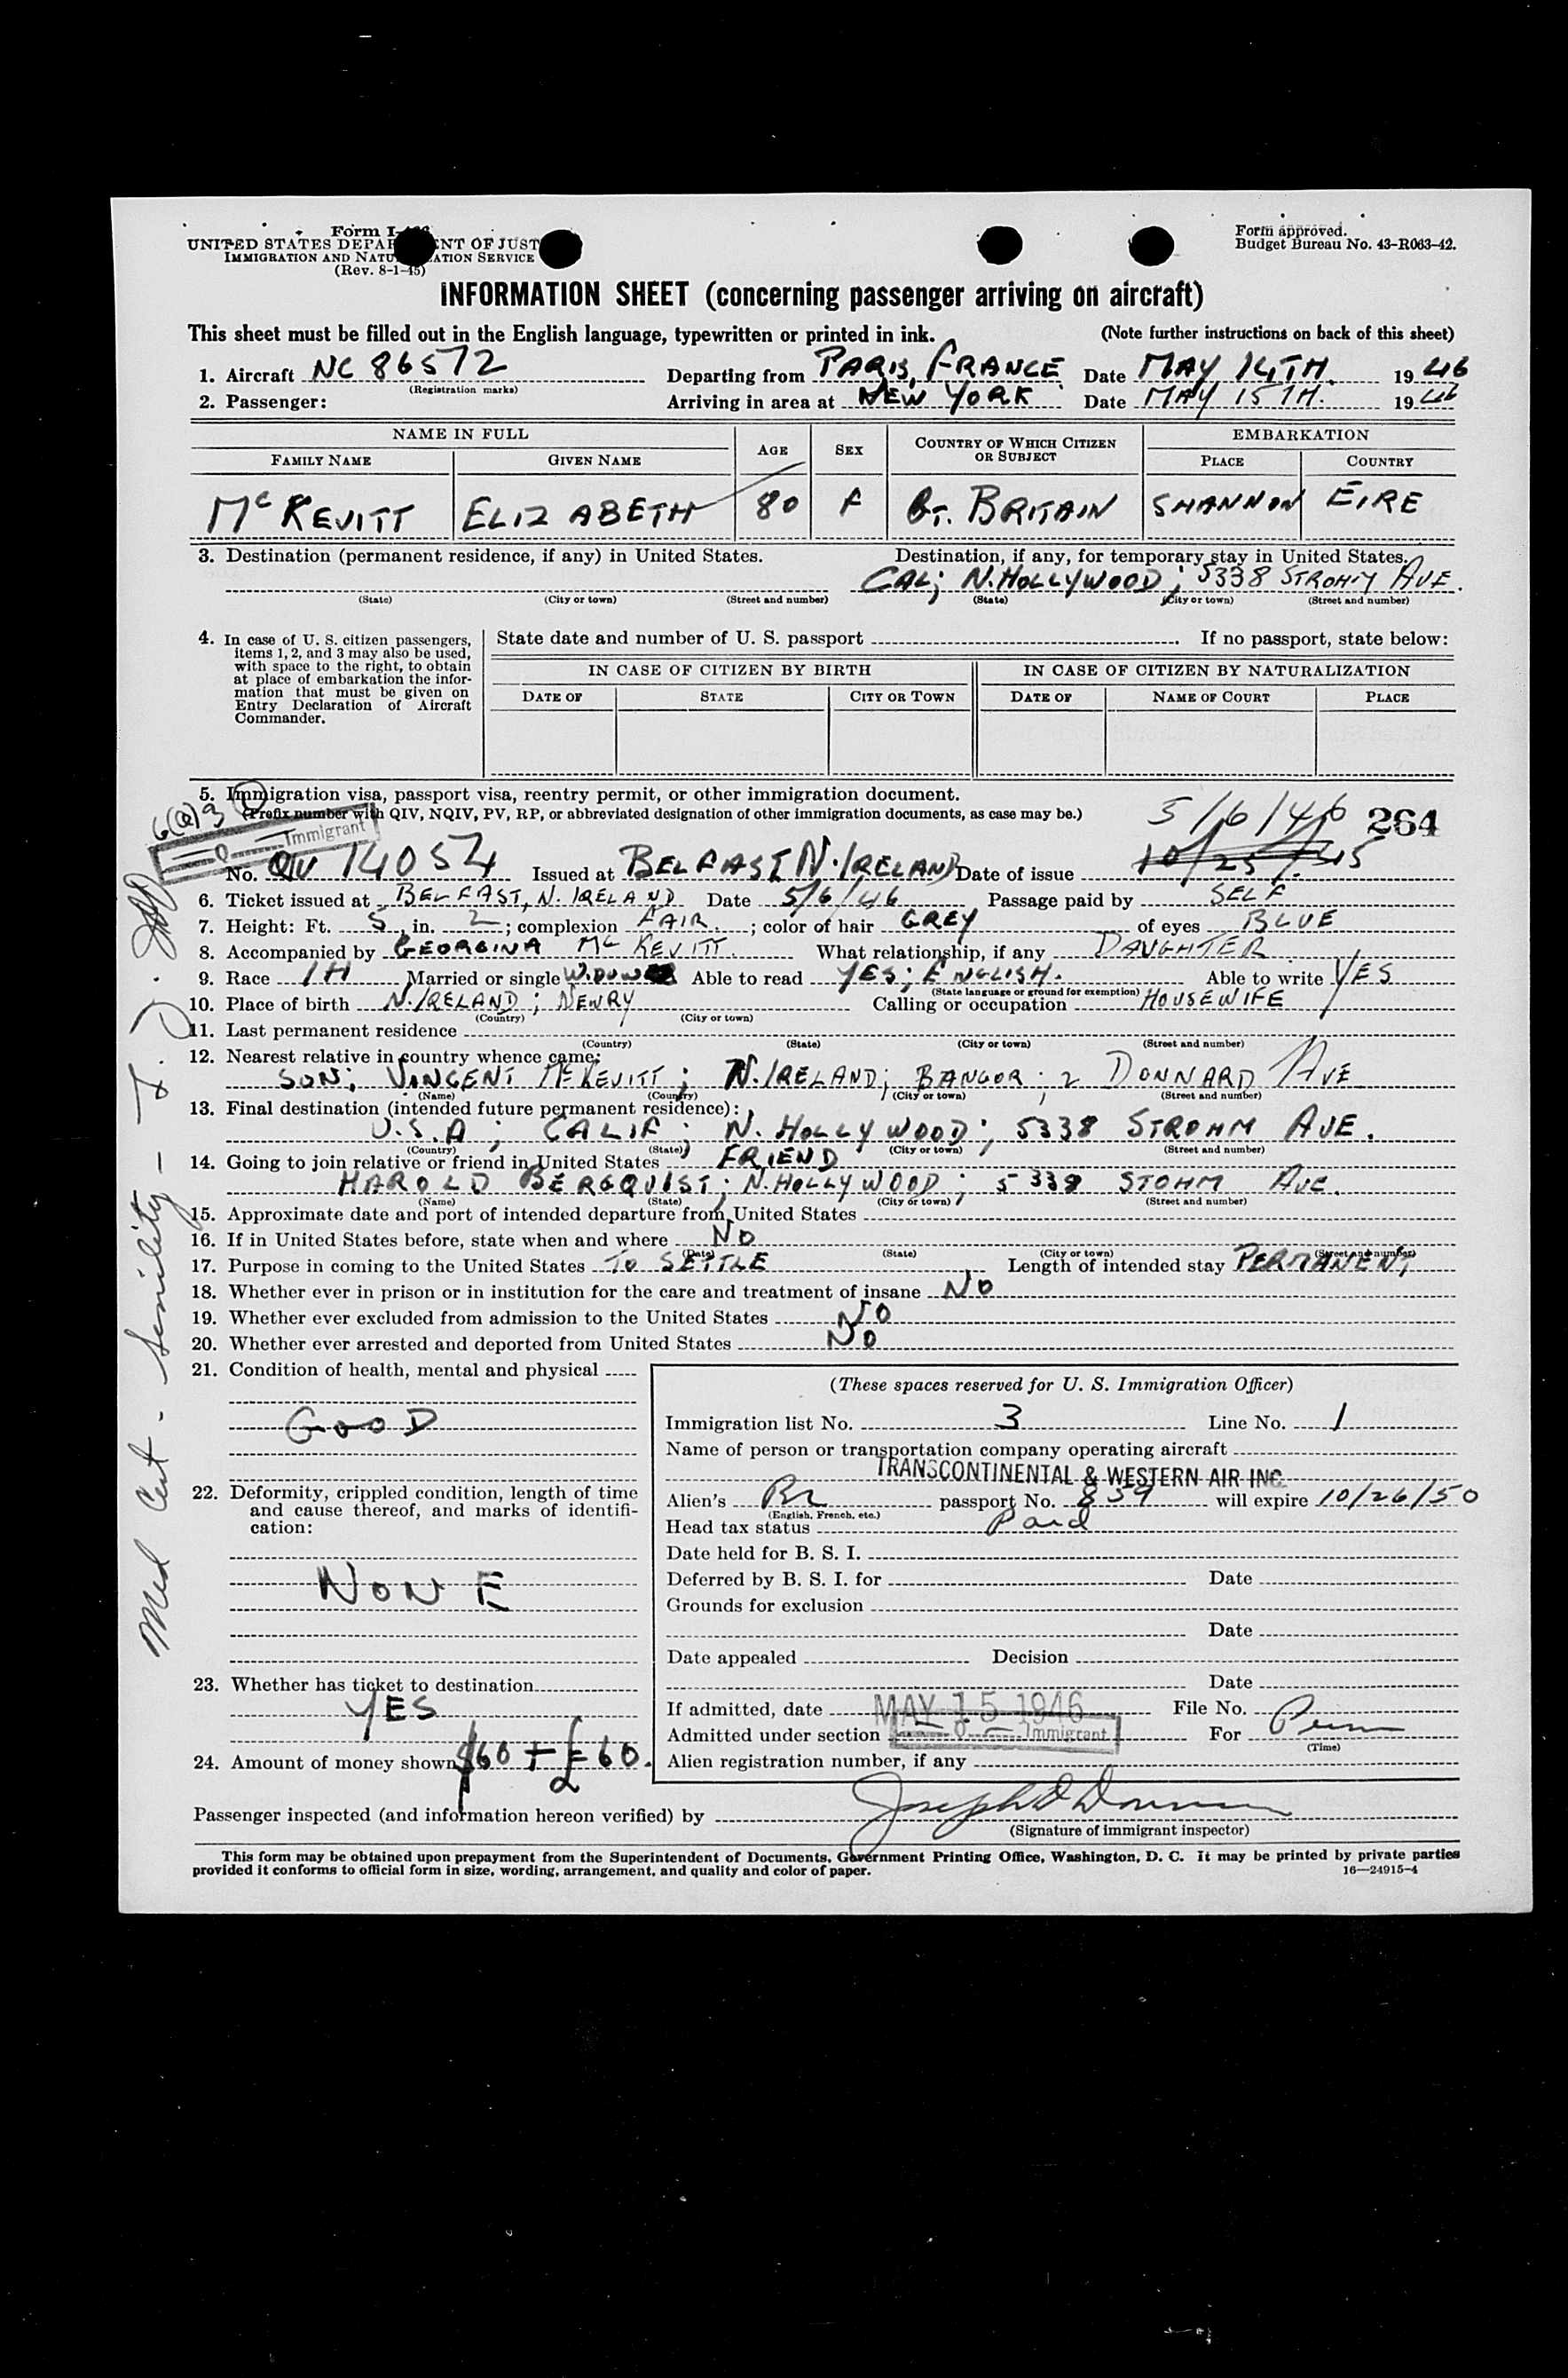 Form I-
UNITED STATES DEPAR ENT OF JUST
IMMIGRATION AND NATU ATION SERVICE
(Rev. 8-1-45)
Form approved.
Budget Bureau No. 43-R063-42.
INFORMATION SHEET (concerning passenger arriving on aircraft)
This sheet must be filled out in the English language, typewritten or printed in ink. (Note further instructions on back of this sheet)
1. Aircraft NC 86572 Departing from PARIS, FRANCE Date MAY 14TH. 1946
(Registration marks)
2. Passenger: Arriving in area at NEW YORK Date MAY 15TH. 1946
NAME IN FULL AGE SEX COUNTRY OF WHICH CITIZEN OR SUBJECT EMBARKATION
FAMILY NAME GIVEN NAME PLACE COUNTRY
McKEVITT ELIZABETH 80 F GT. BRITAIN SHANNON EIRE
3. Destination (permanent residence, if any) in United States. Destination, if any, for temporary stay in United States.
CAL; N. HOLLYWOOD; 5338 STROHM AVE.
(State) (City or town) (Street and number) (State) (City or town) (Street and number)
4. In case of U. S. citizen passengers,
items 1, 2, and 3 may also be used,
with space to the right, to obtain
at place of embarkation the infor-
mation that must be given on
Entry Declaration of Aircraft
Commander.
State date and number of U. S. passport . If no passport, state below:
IN CASE OF CITIZEN BY BIRTH IN CASE OF CITIZEN BY NATURALIZATION
DATE OF STATE CITY OR TOWN DATE OF NAME OF COURT PLACE
5. Immigration visa, passport visa, reentry permit, or other immigration document.
(Prefix number with QIV, NQIV, PV, RP, or abbreviated designation of other immigration documents, as case may be.)
6(a)3
Q Immigrant
5/6/46 264
No. QIV 14054 Issued at BELFAST N. IRELAND Date of issue 10/25/45
6. Ticket issued at BELFAST, N. IRELAND Date 5/6/46 Passage paid by SELF
7. Height: Ft. 5, in. 2; complexion FAIR.; color of hair GREY of eyes BLUE
8. Accompanied by GEORGINA McKEVITT. What relationship, if any DAUGHTER
9. Race IH Married or single WIDOW Able to read YES; ENGLISH. Able to write YES
(State language or ground for exemption)
10. Place of birth N. IRELAND; NEWRY Calling or occupation HOUSEWIFE
(Country) (City or town)
11. Last permanent residence
(Country) (State) (City or town) (Street and number)
12. Nearest relative in country whence came:
SON; VINCENT McKEVITT; N. IRELAND; BANGOR; 2 DONNARD AVE
(Name) (Country) (City or town) (Street and number)
13. Final destination (intended future permanent residence):
U.S.A; CALIF; N. HOLLYWOOD; 5338 STROHM AVE.
(Country) (State) (City or town) (Street and number)
14. Going to join relative or friend in United States FRIEND
HAROLD BERGQUIST; N. HOLLYWOOD; 5338 STOHM AVE.
(Name) (State) (City or town) (Street and number)
15. Approximate date and port of intended departure from United States
16. If in United States before, state when and where NO
(Date) (State) (City or town) (Street and number)
17. Purpose in coming to the United States TO SETTLE Length of intended stay PERMANENT
18. Whether ever in prison or in institution for the care and treatment of insane NO
19. Whether ever excluded from admission to the United States NO
20. Whether ever arrested and deported from United States NO
21. Condition of health, mental and physical
GOOD
22. Deformity, crippled condition, length of time
and cause thereof, and marks of identifi-
cation:
NONE
23. Whether has ticket to destination
YES
24. Amount of money shown $60 + £60.
(These spaces reserved for U. S. Immigration Officer)
Immigration list No. 3 Line No. 1
Name of person or transportation company operating aircraft
TRANSCONTINENTAL & WESTERN AIR INC.
Alien's Br passport No. 859 will expire 10/26/50
(English, French, etc.)
Head tax status Paid
Date held for B. S. I.
Deferred by B. S. I. for Date
Grounds for exclusion
Date
Date appealed Decision
Date
If admitted, date MAY 15 1946 File No.
Admitted under section Q Immigrant For Perm
(Time)
Alien registration number, if any
Passenger inspected (and information hereon verified) by Joseph D
(Signature of immigrant inspector)
This form may be obtained upon prepayment from the Superintendent of Documents, Government Printing Office, Washington, D. C. It may be printed by private parties
provided it conforms to official form in size, wording, arrangement, and quality and color of paper. 16—24915-4
Med Cert - Senility -